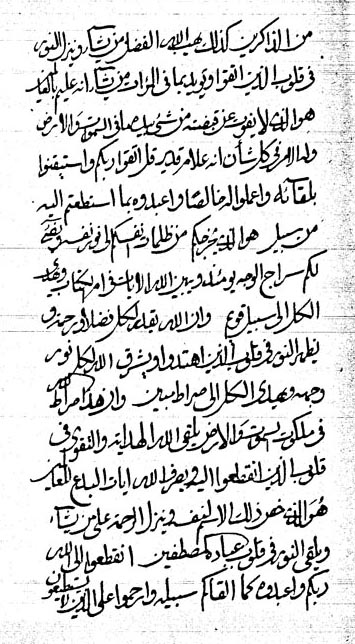 من الذاكرين كذلك يهب الله الفضل من يشاء وينزل النور
في قلوب الذين اتقوا ويؤيد بما في المرات من يشاء انه عليم بالغيب
هو الذي لا يفوت عن قبضته من شيء يبصر ما في السموات والارض
وله الامر في كل شأن انه علام قدير قل اتقوا ربكم واستيقنوا
بلقائه واعملوا له خالصا واعبدوه بما استطعتم اليه
من سبيل هو الذي يخرجكم من ظلمات انفسكم الى نور نفسه
لكم سراج الوجه يومئذ ويبين الله الايات في ام الكتاب ويهدي
الكل الى سبيل قويم وان الله يقدر لكل فضلا ورحمة و
يظهر النور في قلوب الذين اهتدوا ويشرق الله لكل نور
وجهه ويهدي الكل الى صراط مبين وان هذا صراط الله
في ملكوت السموات والارض يلقي الله الهداية والتقوى في
قلوب الذين انقطعوا اليه ويصرف الله ايات
هو الذي ذلك لنفسه وينزل الرحمة على من يشاء
ويلقي النور في قلوب عباده المصطفين انقطعوا الى الله
ربكم واعبدوه كما القاكم سبيله وارحموا على الذين لا يستطيعون